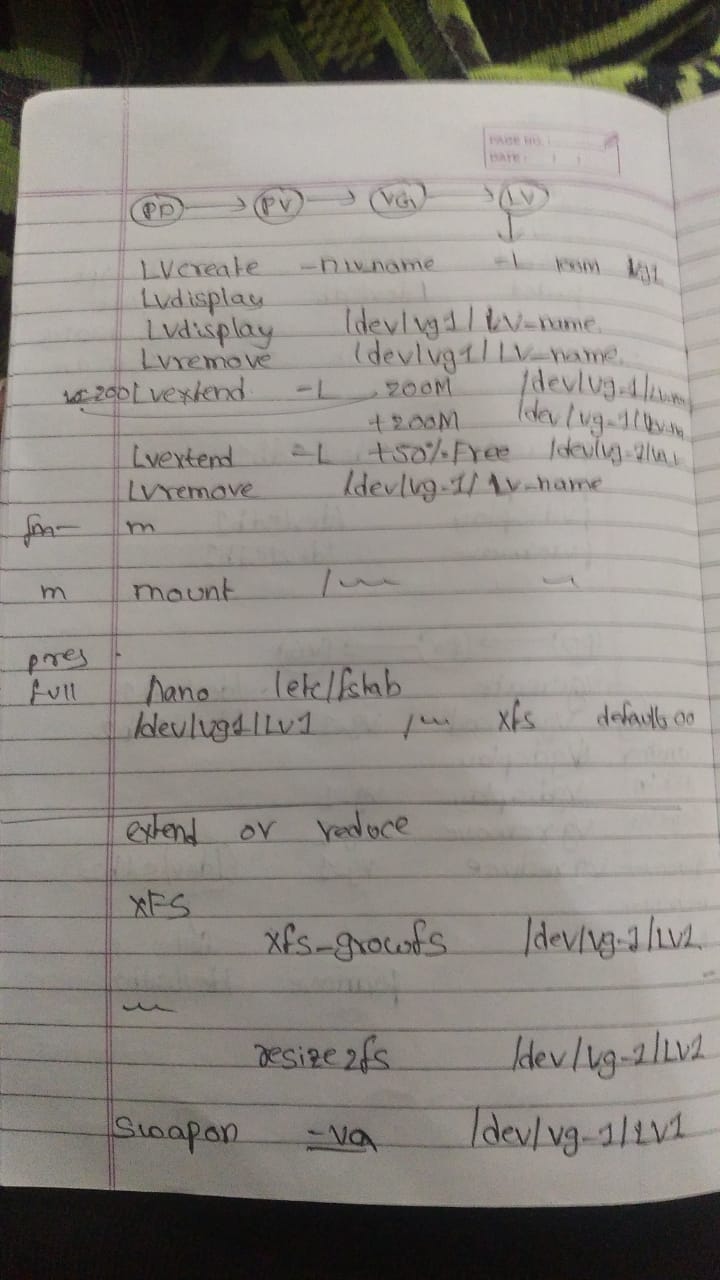 PAGE NO. :
DATE : / /
PD → PV → VG → LV
Lvcreate -n lvname -L
Lvdisplay
Lvdisplay /dev/vg1/LV-name
Lvremove /dev/vg1/LV-name
Lvextend -L 200M /dev/vg-1/
+200M /dev/vg-1/
Lvextend =L +50%Free
Lvremove /dev/vg-1/lv-name
m
m mount /
pres
full nano /etc/fstab
/dev/vg1/LV1 / xfs defaults 00
extend or reduce
XFS
xfs-growfs /dev/vg-1/LV2
resize2fs /dev/vg-1/LV2
Swapon -va /dev/vg-1/LV1